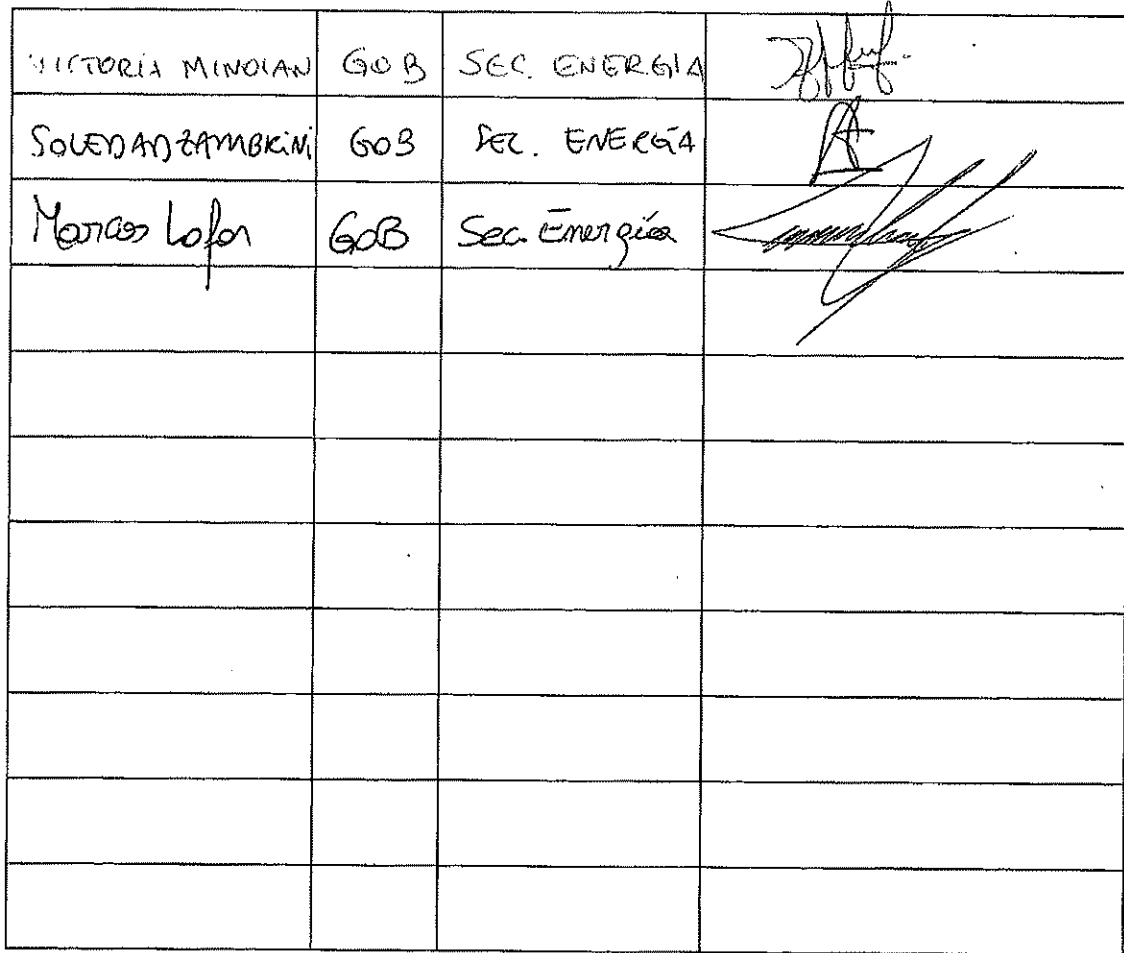 VICTORIA MINOIAN GOB SEC. ENERGIA
SOLEDAD ZAMBRINI GOB SEC. ENERGÍA
Marcos GOB Sec. Energía